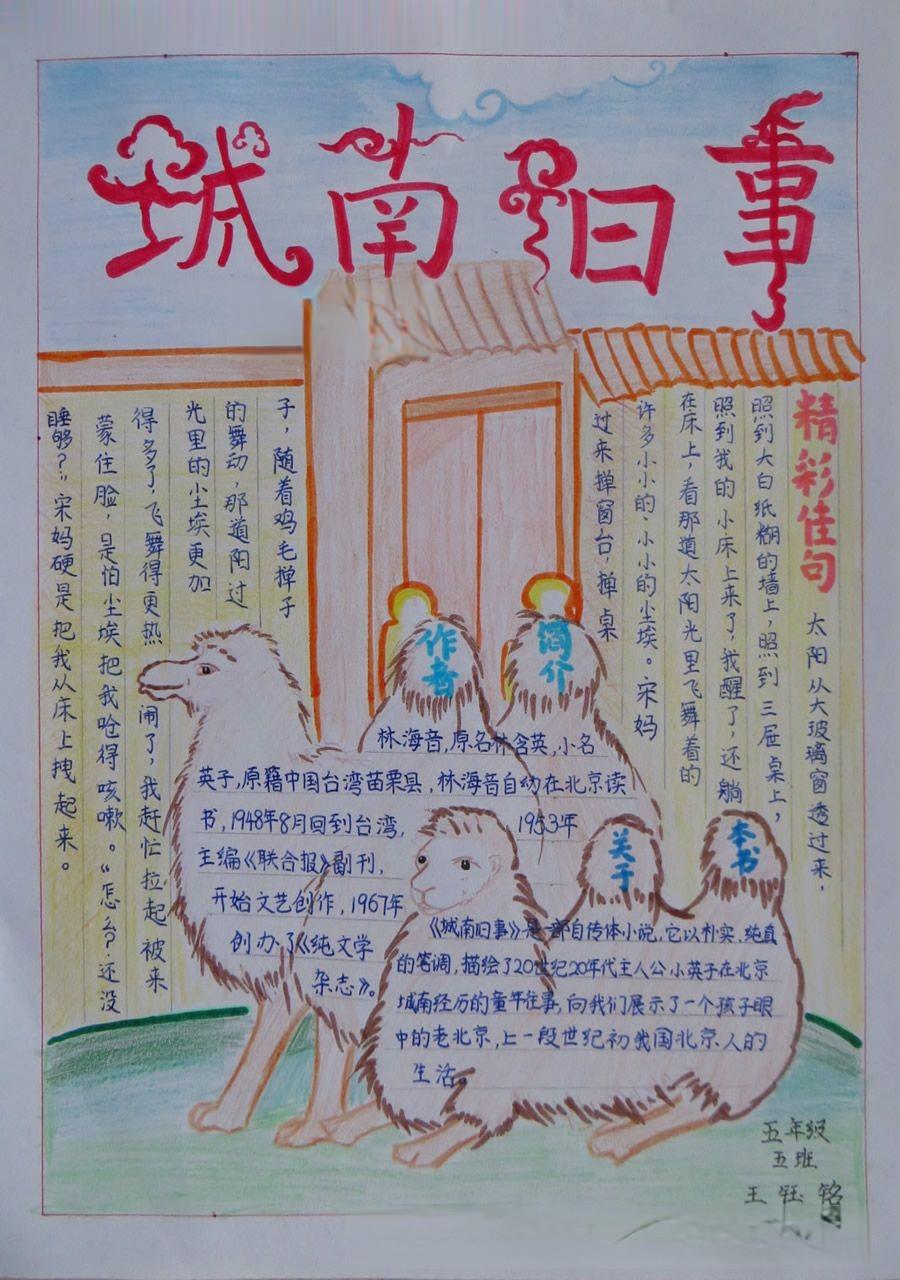 城南旧事
精彩佳句
太阳从大玻璃窗透过来，
照到大白纸糊的墙上，照到三屉桌上，
照到我的小床上来了，我醒了，还躺
在床上，看那道太阳光里飞舞着的
许多小小的，小小的尘埃。宋妈
过来掸窗台，掸桌
子，随着鸡毛掸子
的舞动，那道阳过
光里的尘埃更加
得多了，飞舞得更热
闹了，我赶忙拉起被来
蒙住脸，是怕尘埃把我呛得咳嗽。“怎么？还没
睡够？”宋妈硬是把我从床上拽起来。
作者
简介
林海音，原名林含英，小名
英子，原籍中国台湾苗栗县，林海音自动在北京读
书，1948年8月回到台湾，1953年
主编《联合报》副刊，
开始文艺创作，1967年
创办了《纯文学
杂志》。
关于
本书
《城南旧事》是一部自传体小说，它以朴实、纯真
的笔调，描绘了20世纪20年代主人公小英子在北京
城南经历的童年往事，向我们展示了一个孩子眼
中的老北京，上一段世纪初我国北京人的
生活。
五年级
五班
王钰铭